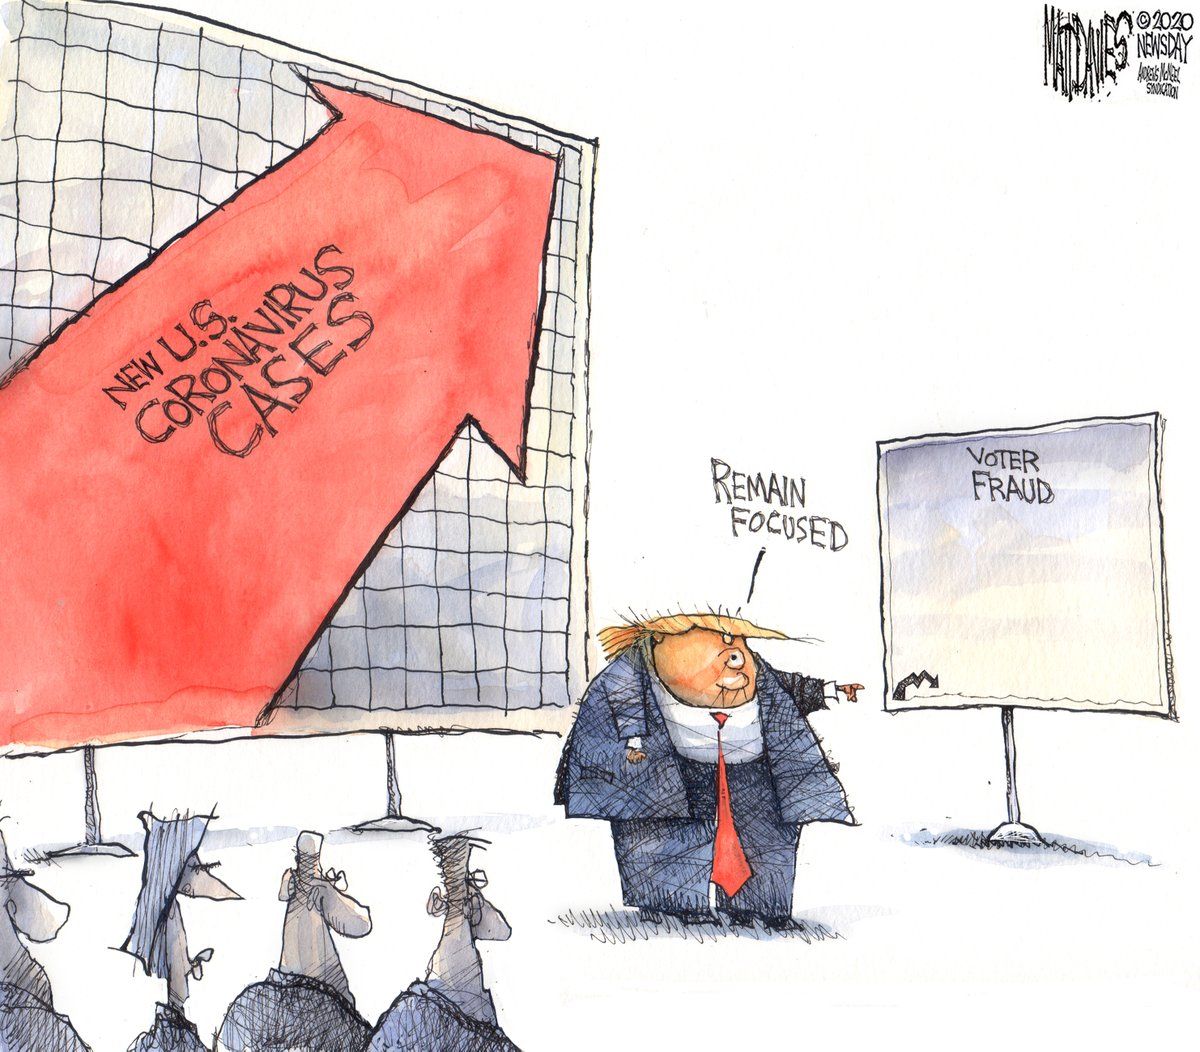 MATT DAVIES
©2020
NEWSDAY
ANDREWS McMEEL
SYNDICATION
NEW U.S.
CORONAVIRUS
CASES
REMAIN
FOCUSED
VOTER
FRAUD